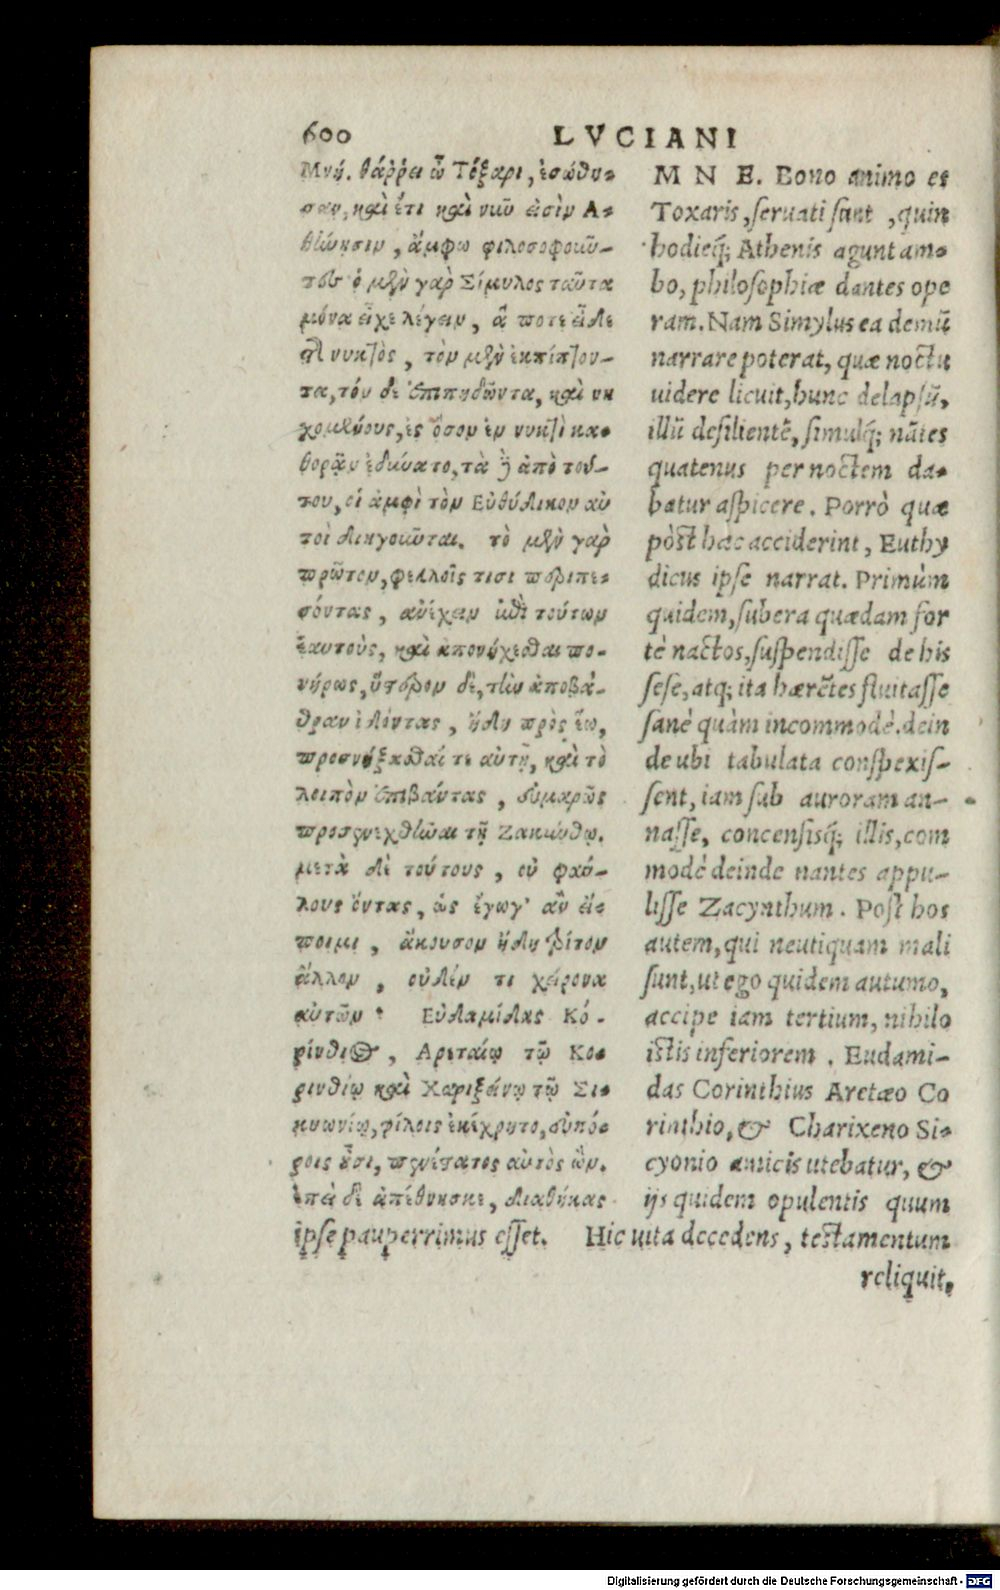 600 LVCIANI
Μνή. θάῤῥει ὦ Τόξαρι, ἐσώθη-
σαν, καὶ ἔτι καὶ νῦν εἰσὶν Α-
θήνησιν, ἄμφω φιλοσοφοῦν-
τες· ὁ μὲν γὰρ Σίμυλος ταῦτα
μόνα εἶχε λέγειν, ἅ ποτε εἶδε
τῆς νυκτὸς, τὸν μὲν ἐκπίπτον-
τα, τόν δὲ ἐπιπηδῶντα, καὶ νη
χομένους, ἐς ὅσον ἐν νυκτὶ κα-
θορᾷν ἐδύνατο, τὰ δὲ ἀπὸ τού-
του, οἱ ἀμφὶ τὸν Εὐθύδικον αὐ
τοὶ διηγοῦνται. τὸ μὲν γὰρ
πρῶτον, φελλοῖς τισι περιπε-
σόντας, ἀνέχειν ἐπὶ τούτων
ἑαυτοὺς, καὶ ἀπονήχεσθαι πο-
νήρως, ὕστερον δὲ, τὴν ἀποβά-
θραν ἰδόντας, ἤδη πρὸς ἕω,
προσνήξασθαί τε αὐτῇ, καὶ τὸ
λοιπὸν ἐπιβάντας, εὐμαρῶς
προσενεχθῆναι τῇ Ζακύνθῳ.
μετὰ δὲ τούτους, οὐ φαύ-
λους ὄντας, ὡς ἔγωγ' ἂν εἴ-
ποιμι, ἄκουσον ἤδη τρίτον
ἄλλον, οὐδέν τι χείρονα
αὐτῶν· Εὐδαμίδας Κό-
ρίνθιος, Αρεταίῳ τῷ Κο-
ρινθίῳ καὶ Χαριξένῳ τῷ Σι-
κυωνίῳ, φίλοις ἐκέχρητο, εὐπό-
ροις οὖσι, πενέστατος αὐτὸς ὤν.
ἐπεὶ δὲ ἀπέθνησκε, διαθήκας
M N E. Bono animo es
Toxaris, seruati sunt, quin
hodieq́; Athenis agunt am-
bo, philosophiæ dantes ope
ram. Nam Simylus ea demũ
narrare poterat, quæ noctu
uidere licuit, hunc delapsũ,
illũ desilientẽ, simulq́; nãtes
quatenus per noctem da-
batur aspicere. Porrò quæ
pòst hac acciderint, Euthy
dicus ipse narrat. Primùm
quidem, subera quædam for
tè nactos, suspendisse de his
sese, atq; ita hærẽtes fluitasse
sanè quàm incommodè. dein
de ubi tabulata conspexis-
sent, iam sub auroram an-
nasse, concensisq́; illis, com
modè deinde nantes appu-
lisse Zacynthum. Post hos
autem, qui neutiquam mali
sunt, ut ego quidem autumo,
accipe iam tertium, nihilo
istis inferiorem. Eudami-
das Corinthius Aretæo Co
rinthio, & Charixeno Si-
cyonio amicis utebatur, &
ijs quidem opulentis quum
ipse pauperrimus esset. Hic uita decedens, testamentum
reliquit,
Digitalisierung gefördert durch die Deutsche Forschungsgemeinschaft - DFG